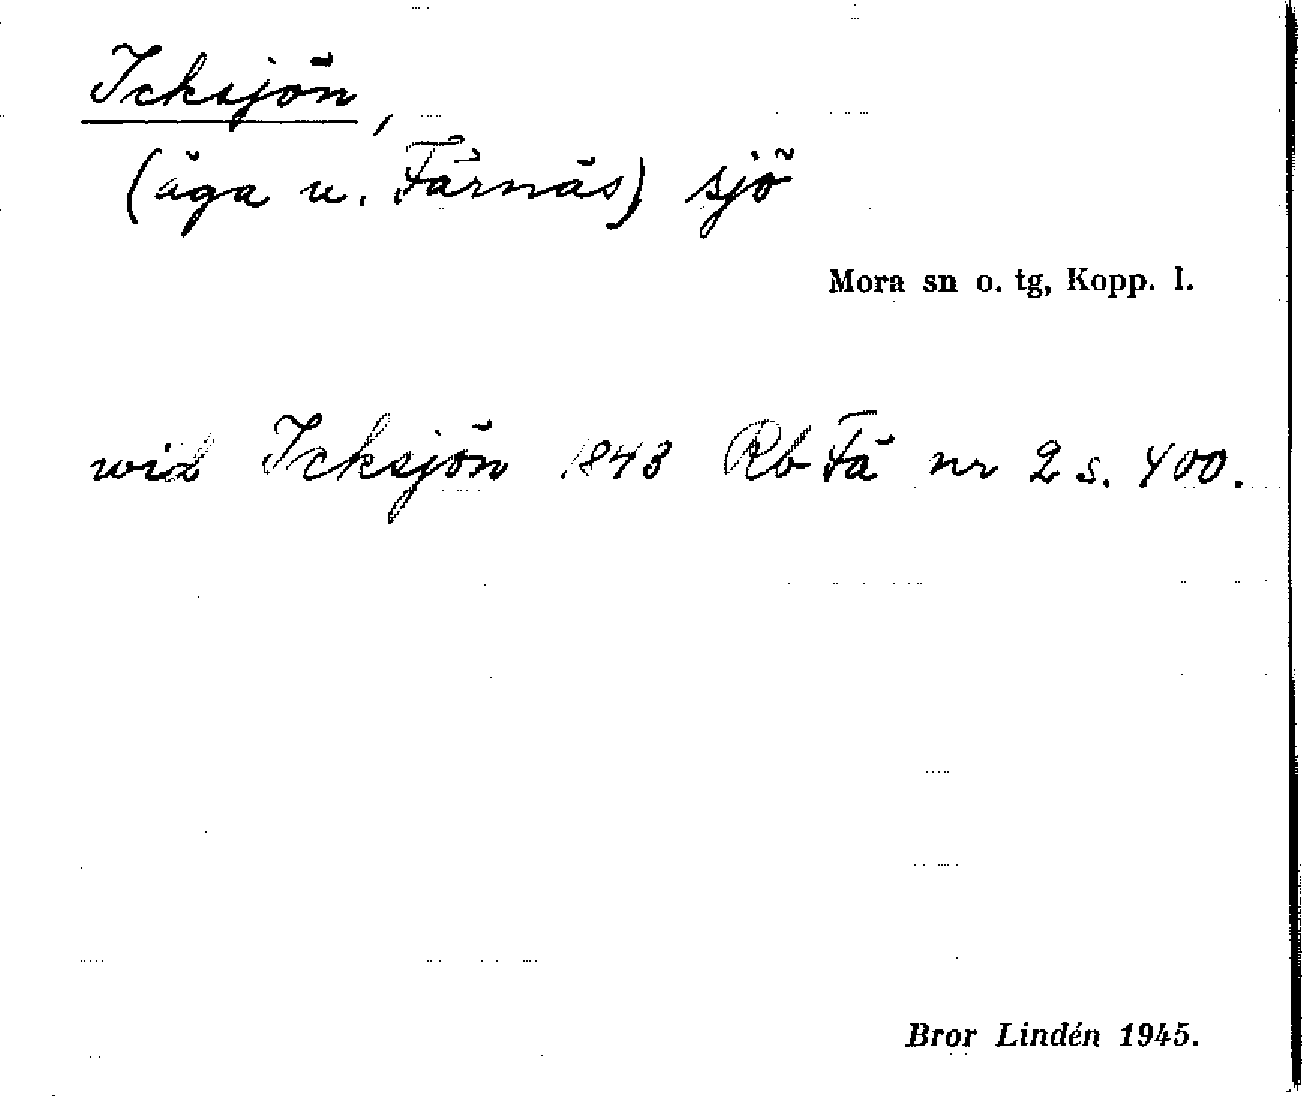 Icksjön,
(äga u. Färnäs) sjö
Mora sn o. tg, Kopp. l.
wid Icksjön 1843 Rb Fä nr 2 s. 400.
Bror Lindén 1945.